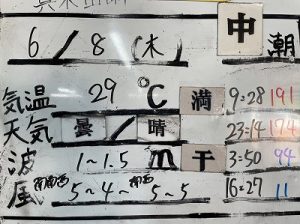 中 朝
6/8(木)
気温 29 ℃
天気 曇/晴
波 1~1.5 m
風 南南西 5~4~南西 5~5
満 9:28 191
23:14 174
干 3:50 94
16:27 11